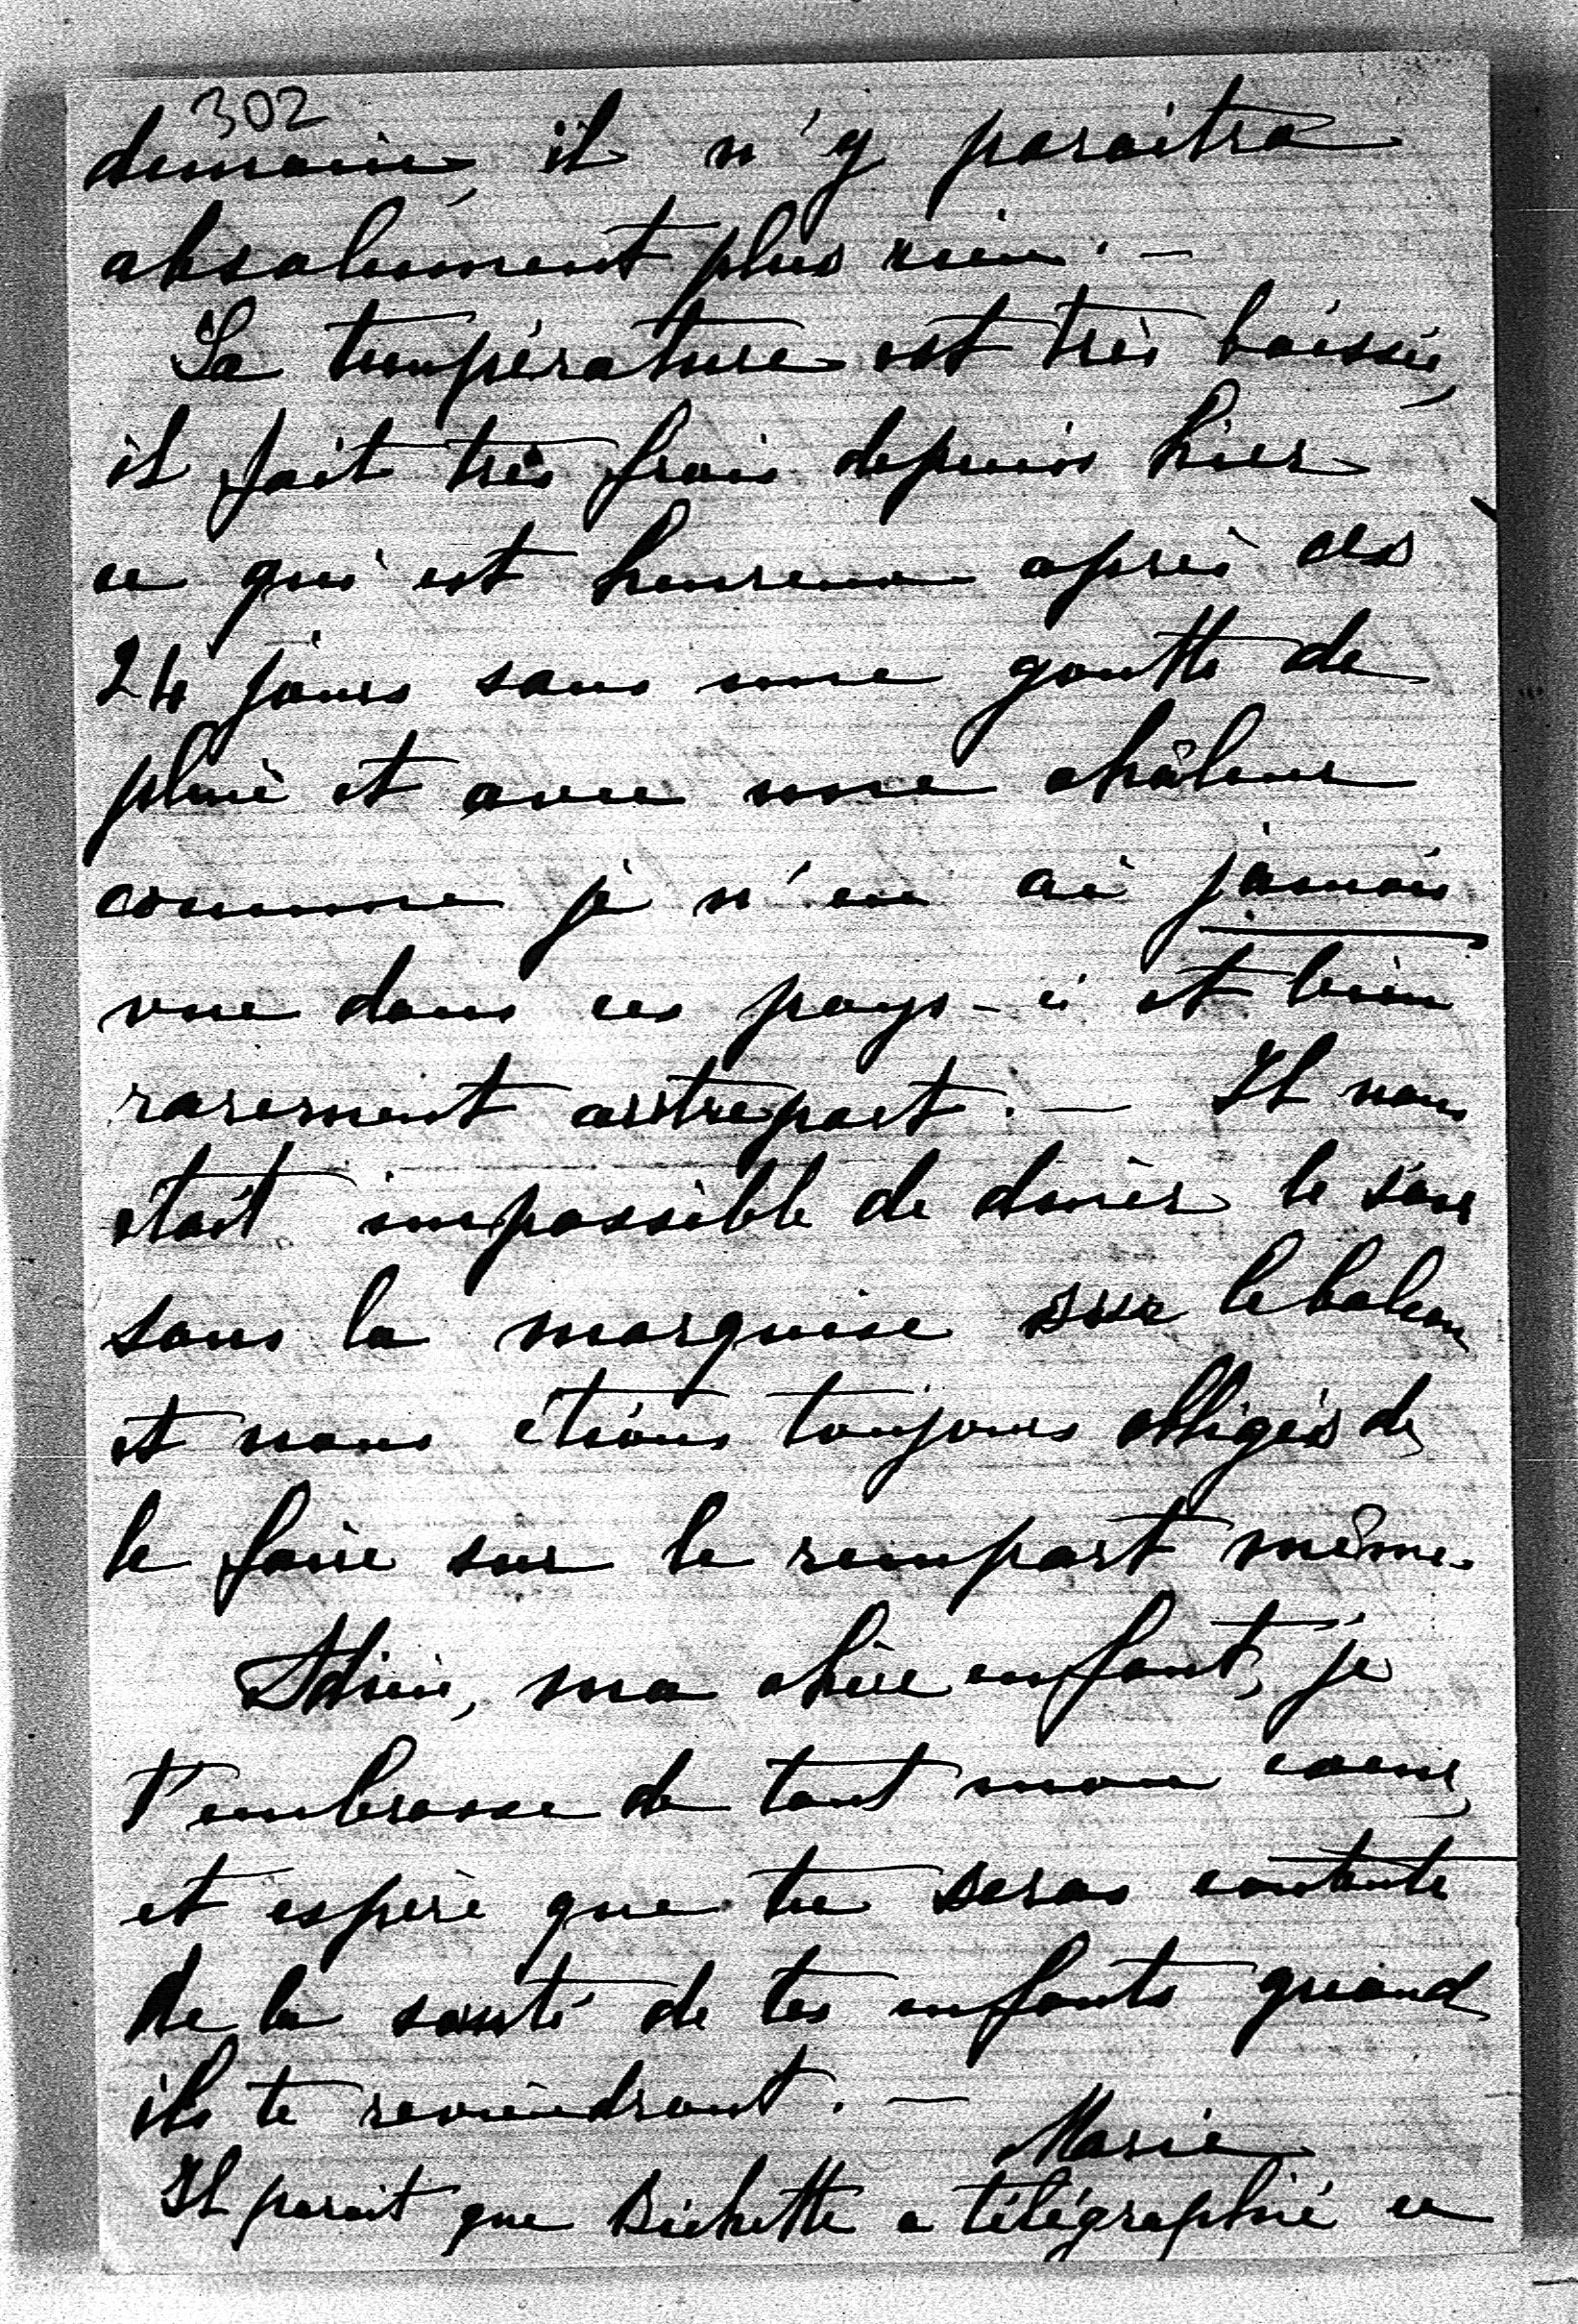 302
demain, il n'y paraitra
absolument plus rien. —
La température est très baissée,
il fait très frais depuis hier
ce qui est heureux après ces
24 jours sans une goutte de
pluie et avec une châleur
comme je n'en ai jamais
vue dans ces pays-ci et bien
rarement autrepart. — Il nous
était impossible de diner le soir
sous la marquise sur le balcon
et nous étions toujours obligés de
le faire sur le rempart même.
Adieu, ma chère enfant, je
t'embrasse de tout mon coeur,
et espère que tu seras contente
de la santé de tes enfants quand
ils te reviendront. —
Marie
Il parait que Bichette a télégraphié ce